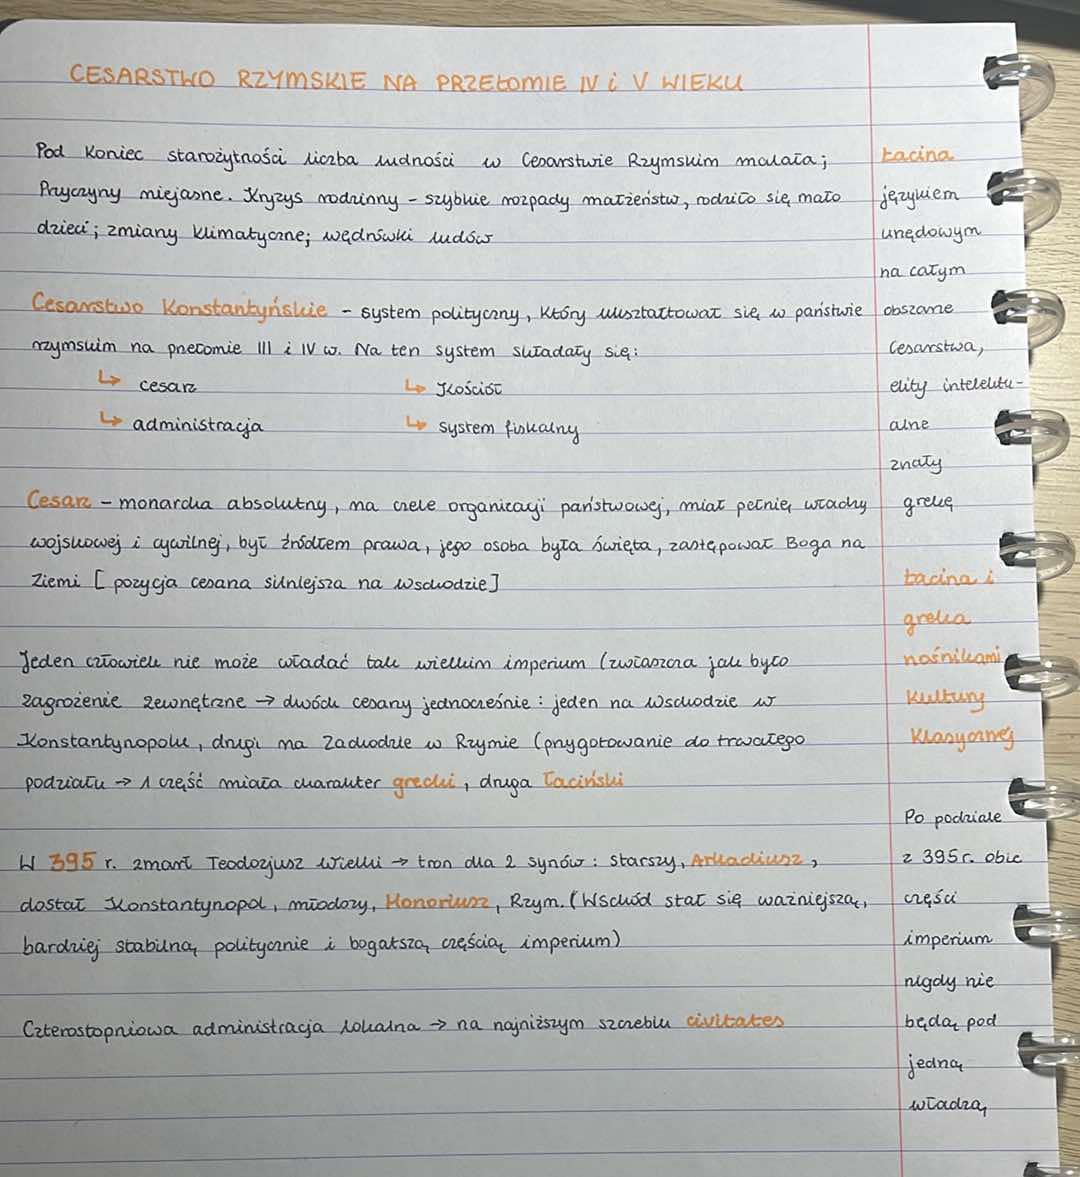 CESARSTWO RZYMSKIE NA PRZEŁOMIE IV i V WIEKU
Pod koniec starożytności liczba ludności w Cesarstwie Rzymskim malała;
Przyczyny niejasne. Kryzys rodzinny - szybkie rozpady małżeństw, rodziło się mało
dzieci; zmiany klimatyczne; wędrówki ludów
Cesarstwo Konstantyńskie - system polityczny, który ukształtował się w państwie
rzymskim na przełomie III i IV w. Na ten system składały się:
↳ cesarz ↳ Kościół
↳ administracja ↳ system fiskalny
Cesarz - monarcha absolutny, na czele organizacji państwowej, miał pełnię władzy
wojskowej i cywilnej, był źródłem prawa, jego osoba była święta, zastępował Boga na
Ziemi [pozycja cesarza silniejsza na wschodzie]
Jeden człowiek nie może władać tak wielkim imperium (zwłaszcza jak było
zagrożenie zewnętrzne → dwóch cesarzy jednocześnie: jeden na Wschodzie w
Konstantynopolu, drugi na Zachodzie w Rzymie (przygotowanie do trwałego
podziału → 1 część miała charakter grecki, druga łaciński
W 395 r. zmarł Teodozjusz Wielki → tron dla 2 synów: starszy, Arkadiusz,
dostał Konstantynopol, młodszy, Honoriusz, Rzym. (Wschód stał się ważniejszą,
bardziej stabilną politycznie i bogatszą częścią imperium)
Czterostopniowa administracja lokalna → na najniższym szczeblu civitates
Łacina
językiem
urzędowym
na całym
obszarze
Cesarstwa,
elity intelektu-
alne
znały
grekę
Łacina i
greka
nośnikami
kultury
klasycznej
Po podziale
z 395 r. obie
części
imperium
nigdy nie
będą pod
jedną
władzą